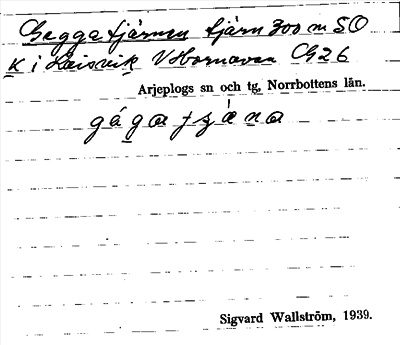 Geggatjärnen tjärn 300 m SO
K i Laisvik V Hornavan G26
Arjeplogs sn och tg, Norrbottens län.
Sigvard Wallström, 1939.